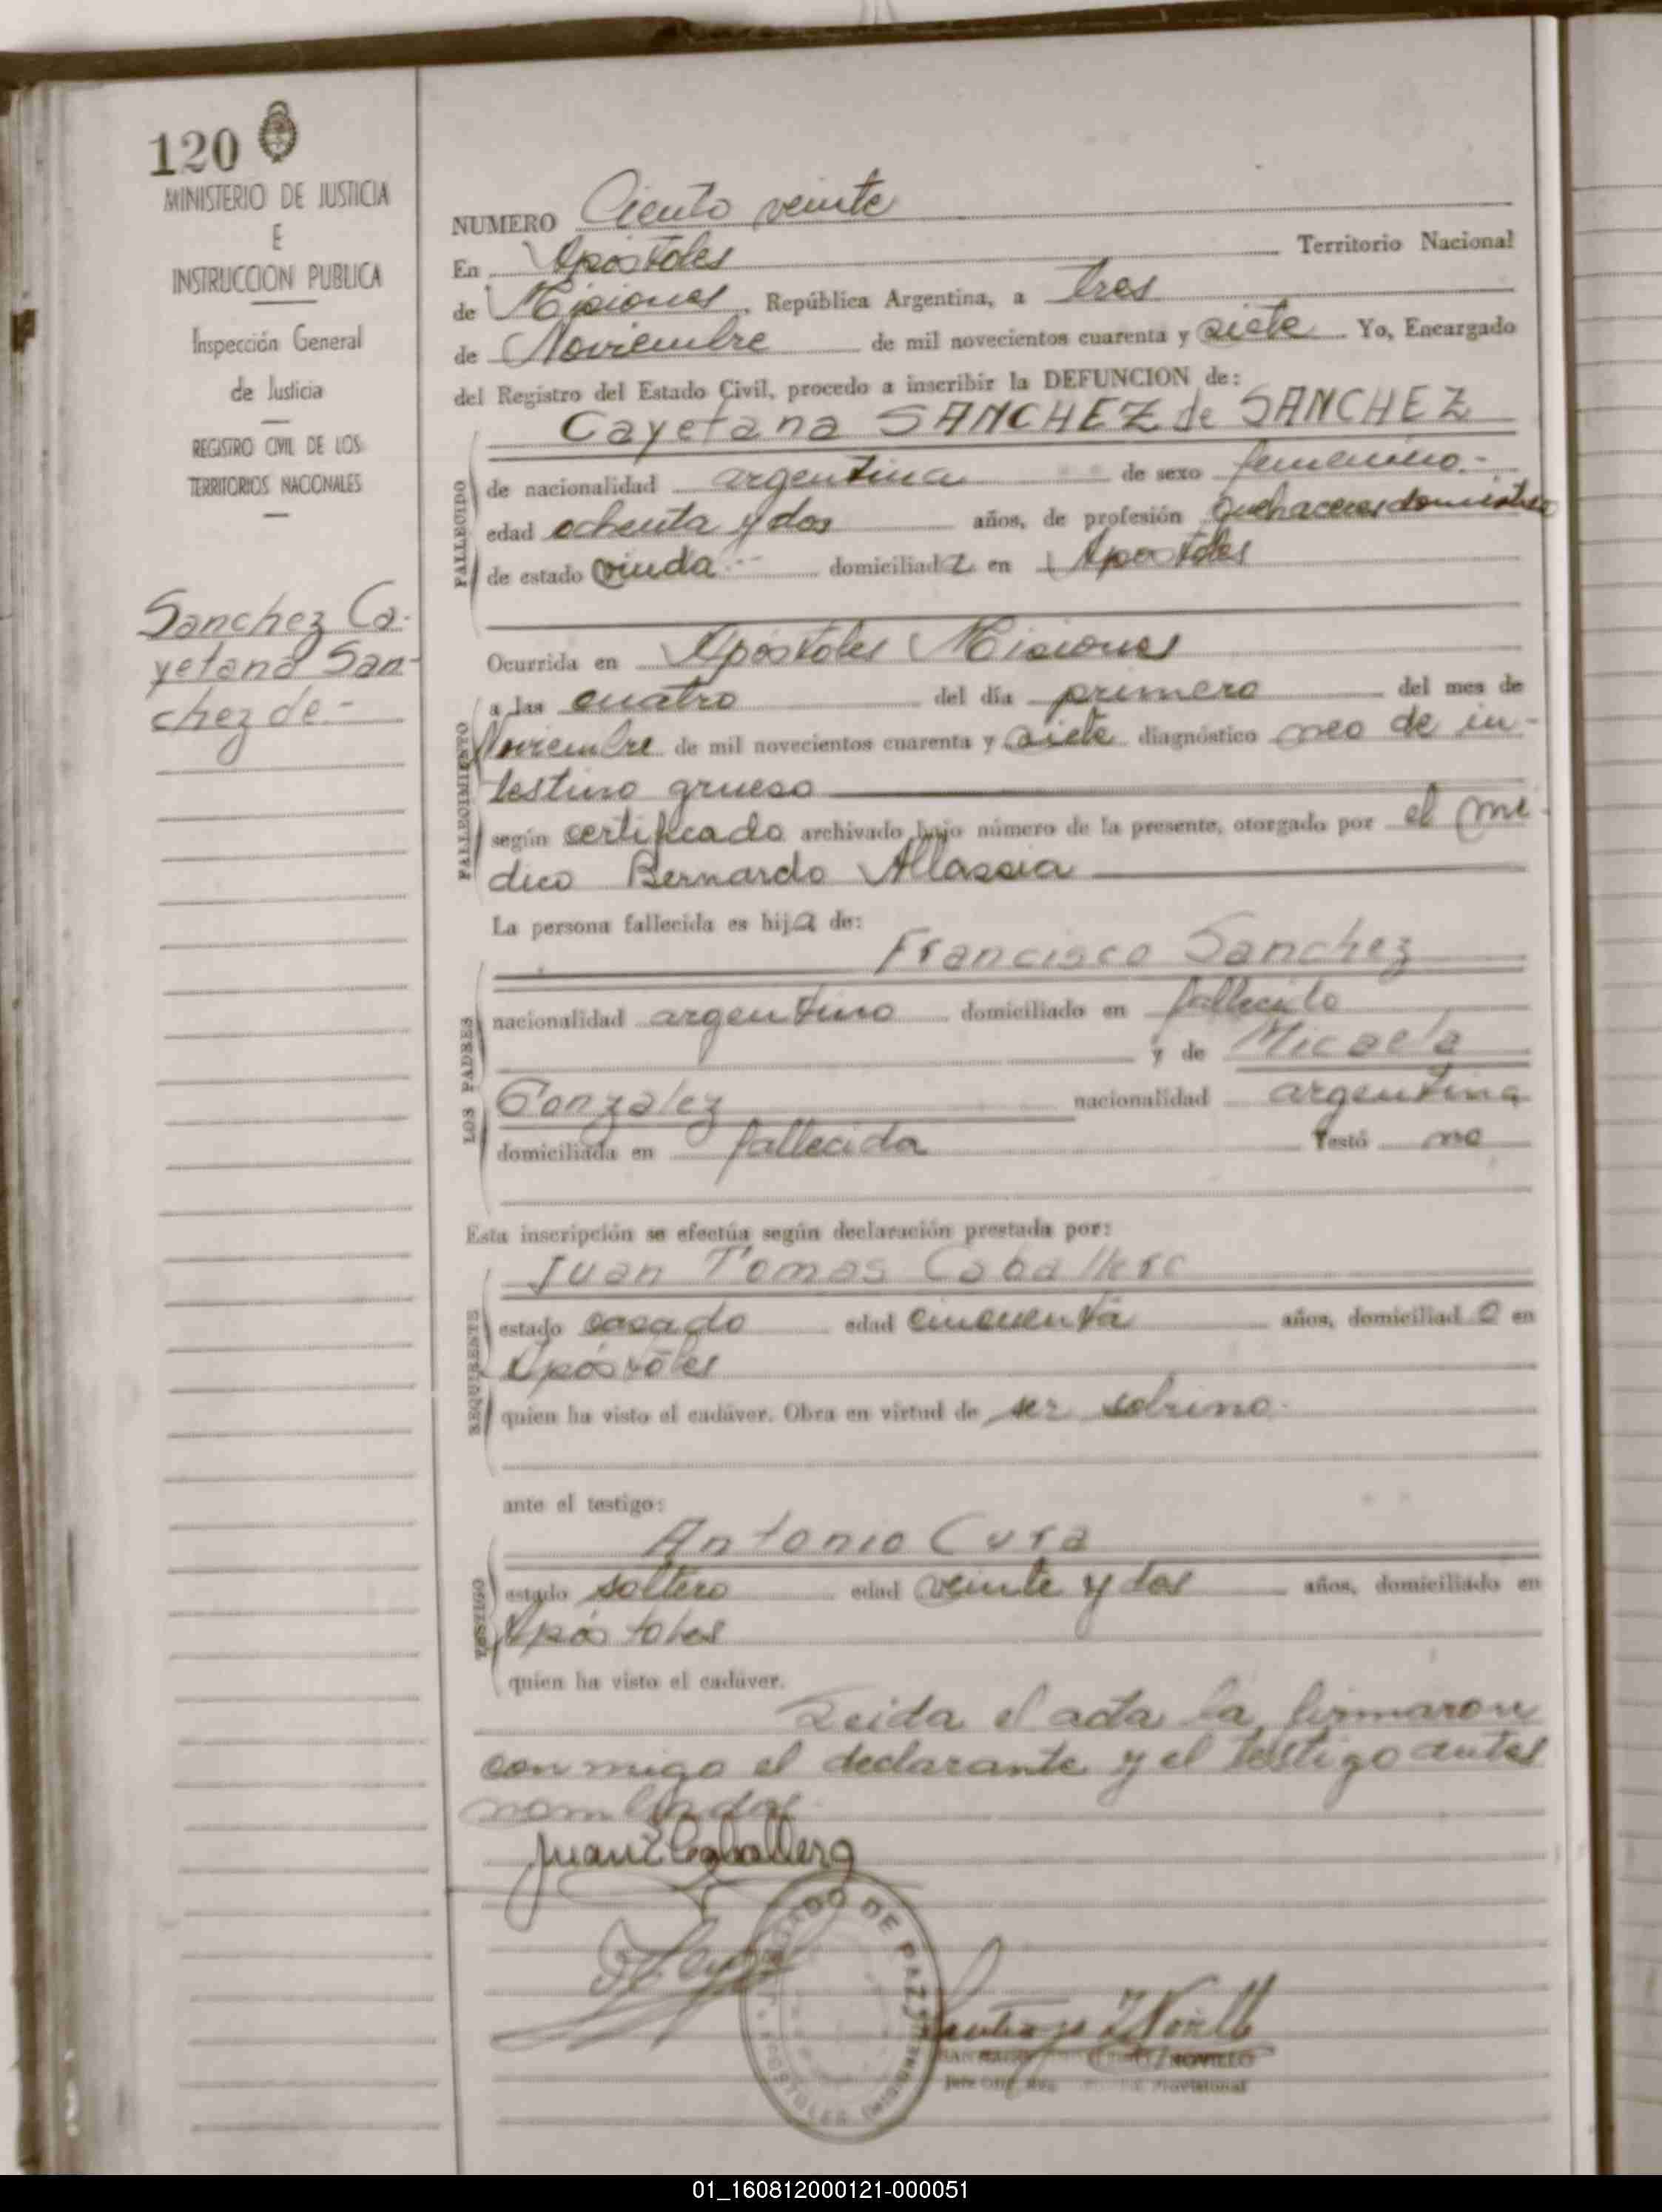 120
MINISTERIO DE JUSTICIA
E
INSTRUCCION PUBLICA
Inspección General
de Justicia
REGISTRO CIVIL DE LOS
TERRITORIOS NACIONALES
Sanchez Ca-
yetana San-
chez de -
NUMERO Ciento veinte
En Apóstoles Territorio Nacional
de Misiones, República Argentina, a tres
de Noviembre de mil novecientos cuarenta y siete Yo, Encargado
del Registro del Estado Civil, procedo a inscribir la DEFUNCION de:
Cayetana SANCHEZ de SANCHEZ
FALLECIDO
de nacionalidad argentina de sexo femenino.-
edad ochenta y dos años, de profesión quehaceres domésticos
de estado viuda.- domiciliada en Apostoles
Ocurrida en Apóstoles Misiones
FALLECIMIENTO
a las cuatro del día primero del mes de
Noviembre de mil novecientos cuarenta y siete diagnóstico neo de in-
testino grueso
según certificado archivado bajo número de la presente, otorgado por el mé-
dico Bernardo Allassia
La persona fallecida es hija de:
Francisco Sanchez
LOS PADRES
nacionalidad argentino domiciliado en fallecido
y de Micaela
Gonzalez nacionalidad argentina
domiciliada en fallecida Testó no
Esta inscripción se efectúa según declaración prestada por:
Juan Tomas Caballero
REQUIRENTE
estado casado edad cincuenta años, domiciliado en
Apóstoles
quien ha visto el cadáver. Obra en virtud de ser sobrino.-
ante el testigo:
Antonio Cura
TESTIGO
estado soltero edad veinte y dos años, domiciliado en
Apóstoles
quien ha visto el cadáver.
Leida el acta la firmaron
conmigo el declarante y el testigo antes
nombrados.
Juan T Caballero
JUZGADO DE PAZ
APOSTOLES (MISIONES)
Santiago Z Novillo
NOVILLO
Provisional
01_160812000121-000051